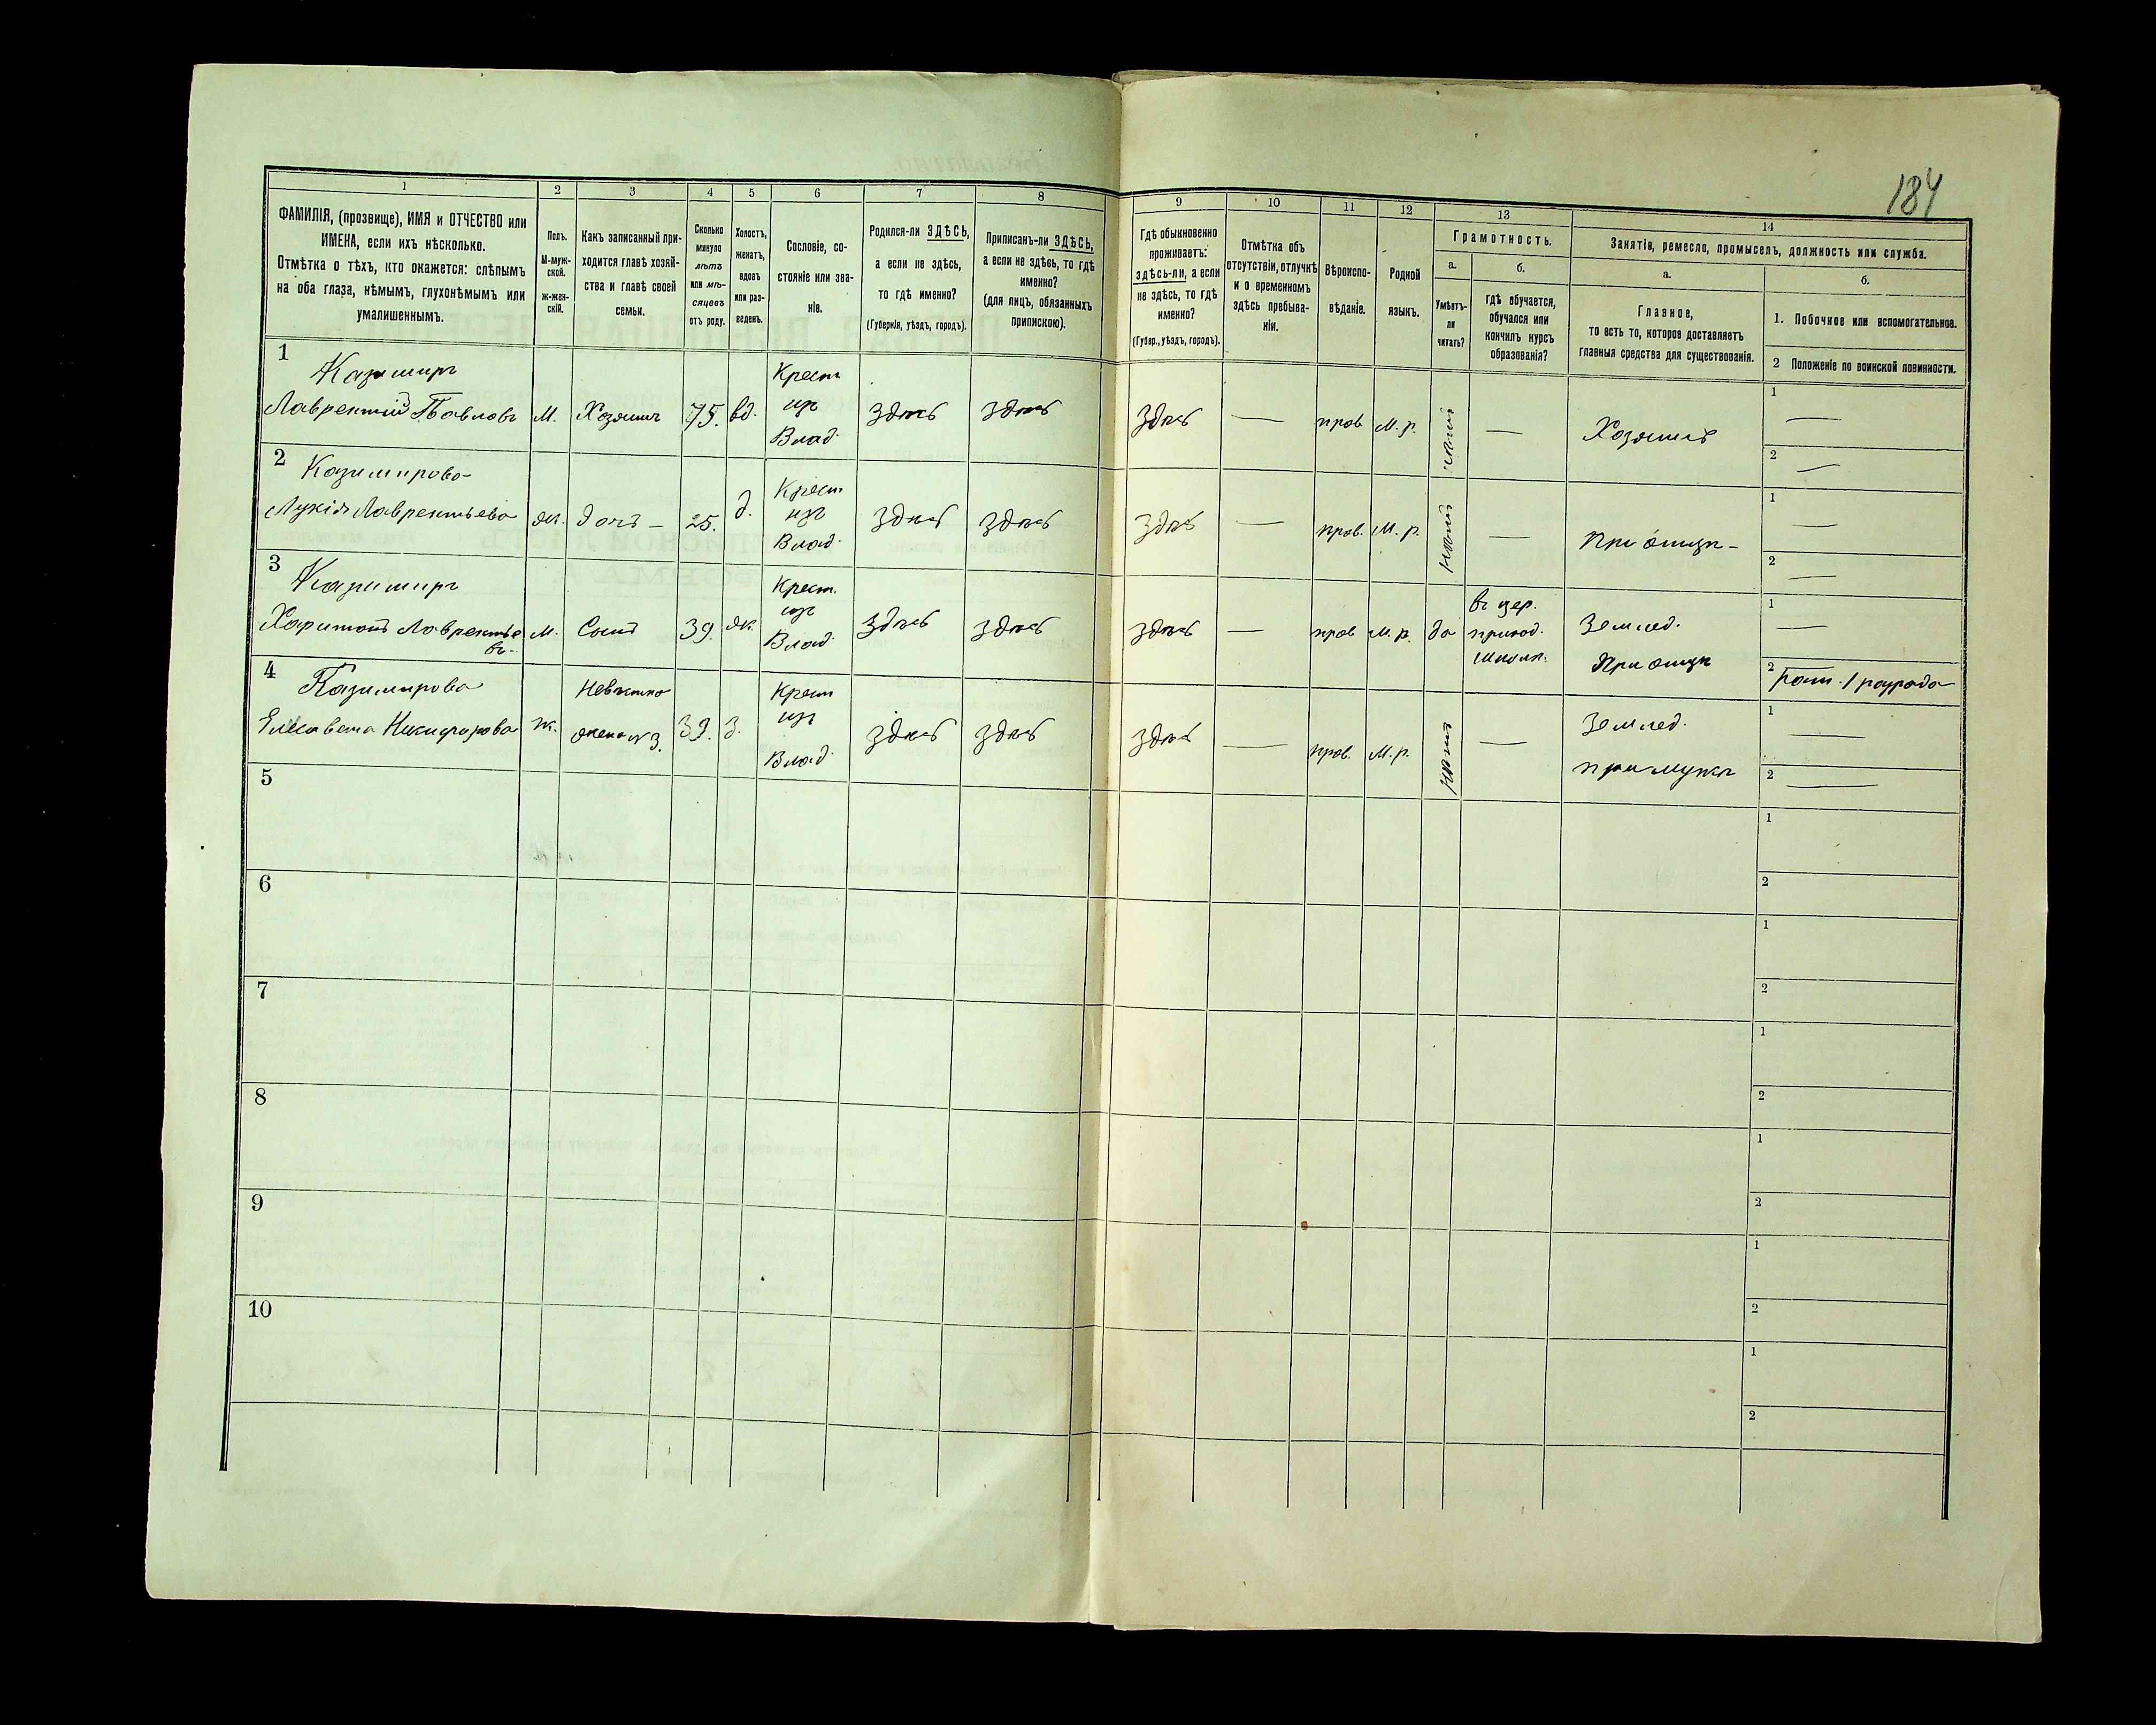 184
1
2
3
4
5
6
7
8
ФАМИЛІЯ, (прозвище), ИМЯ и ОТЧЕСТВО или
ИМЕНА, если ихъ нѣсколько.
Отмѣтка о тѣхъ, кто окажется: слѣпымъ
на оба глаза, нѣмымъ, глухонѣмымъ или
умалишеннымъ.
Полъ.
М-муж-
ской.
ж-жен-
скій.
Какъ записанный при-
ходится главѣ хозяй-
ства и главѣ своей
семьи.
Сколько
минуло
лѣтъ
или мѣ-
сяцевъ
отъ роду.
Холостъ,
женатъ,
вдовъ
или раз-
веденъ.
Сословіе, со-
стояніе или зва-
ніе.
Родился-ли ЗДѢСЬ,
а если не здѣсь,
то гдѣ именно?
(Губернія, уѣздъ, городъ).
Приписанъ-ли ЗДѢСЬ,
а если не здѣсь, то гдѣ
именно?
(для лицъ, обязанныхъ
припискою).
9
10
11
12
13
14
Гдѣ обыкновенно
проживаетъ:
здѣсь-ли, а если
не здѣсь, то гдѣ
именно?
(Губер., уѣздъ, городъ).
Отмѣтка объ
отсутствіи, отлучкѣ
и о временномъ
здѣсь пребыва-
ніи.
Вѣроиспо-
вѣданіе.
Родной
языкъ.
Грамотность.
а.
Умѣетъ-
ли
читать?
б.
гдѣ обучается,
обучался или
кончилъ курсъ
образованія?
Занятія, ремесло, промыселъ, должность или служба.
а.
Главное,
то есть то, которое доставляетъ
главныя средства для существованія.
б.
1. Побочное или вспомогательное.
2 Положеніе по воинской повинности.
1
Казимиръ
Лаврентій Павловъ
М.
Хозяинъ
75.
вд.
Крест
изъ
Влад.
здѣсь
здѣсь
здѣсь
—
прав
М. р.
—
Хозяинъ
1
—
2
—
2
Казимирова
Лукія Лаврентьева
ж.
дочь –
25.
д.
Крест
изъ
Влад.
здѣсь
здѣсь
здѣсь
—
прав.
М. р.
нѣтъ
—
При отцѣ –
1
—
2
—
3
Казимиръ
Харитонъ Лавренть­е
въ
М.
Сынъ
39.
ж.
Крест.
изъ
Влад.
здѣсь
здѣсь
здѣсь
—
прав
М. р.
да
въ цер.
приход.
школѣ.
Землед.
При отцѣ
1
—
2
ратн. 1 разряда
4
Казимирова
Елисавета Никифорова
ж.
Невѣстка
жена N 3.
39.
з.
Крест
изъ
Влад.
здѣсь
здѣсь
здѣсь
—
прав.
М. р.
нѣтъ
—
Землед.
при мужѣ
1
—
2
—
5
1
2
6
1
2
7
1
2
8
1
2
9
1
2
10
1
2